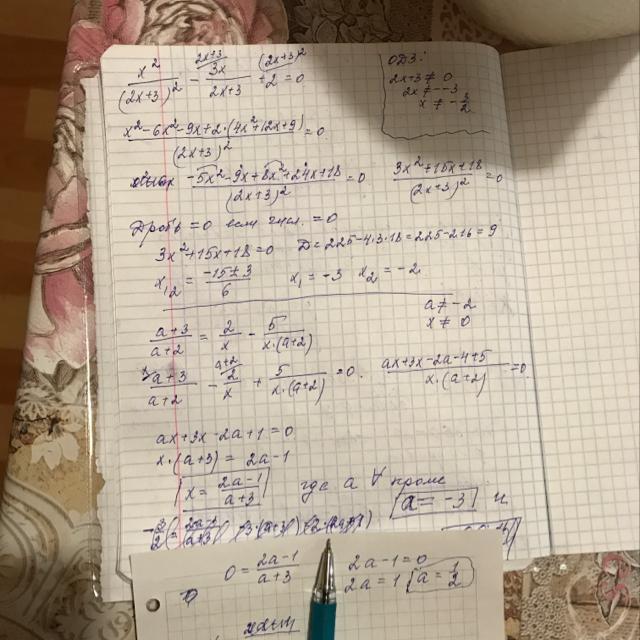 x²/(2x+3)² - 3x/(2x+3) + 2 = 0
2x+3 (2x+3)²
ОДЗ:
2x+3 ≠ 0
2x ≠ -3
x ≠ -3/2
(x²-6x²-9x+2·(4x²+12x+9))/(2x+3)² = 0
(-5x²-9x+8x²+24x+18)/(2x+3)² = 0 (3x²+15x+18)/(2x+3)² = 0
Дробь = 0 если числ. = 0
3x²+15x+18=0 D=225-4·3·18=225-216=9
x₁,₂ = (-15±3)/6 x₁ = -3 x₂ = -2
a ≠ -2
x ≠ 0
(a+3)/(a+2) = 2/x - 5/(x·(a+2))
(a+3)/(a+2) - 2/x + 5/(x·(a+2)) = 0 (ax+3x-2a-4+5)/(x·(a+2)) = 0
x a+2
ax+3x-2a+1=0
x·(a+3) = 2a-1
x = (2a-1)/(a+3) где a ∀ кроме
a = -3 и
0 = (2a-1)/(a+3) 2a-1=0
2a=1 a = 1/2